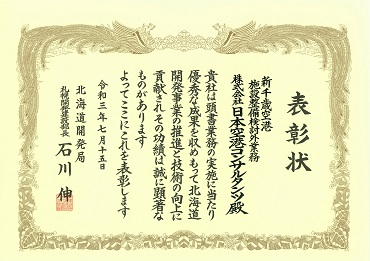 表彰状
新千歳空港
施設整備検討外業務
株式会社日本空港コンサルタンツ殿
貴社は頭書業務の実施に当たり
優秀な成果を収めもって北海道
開発事業の推進と技術の向上に
貢献されその功績は誠に顕著な
ものがあります
よってここにこれを表彰します
令和三年七月十五日
北海道開発局
札幌開発建設部長
石川伸